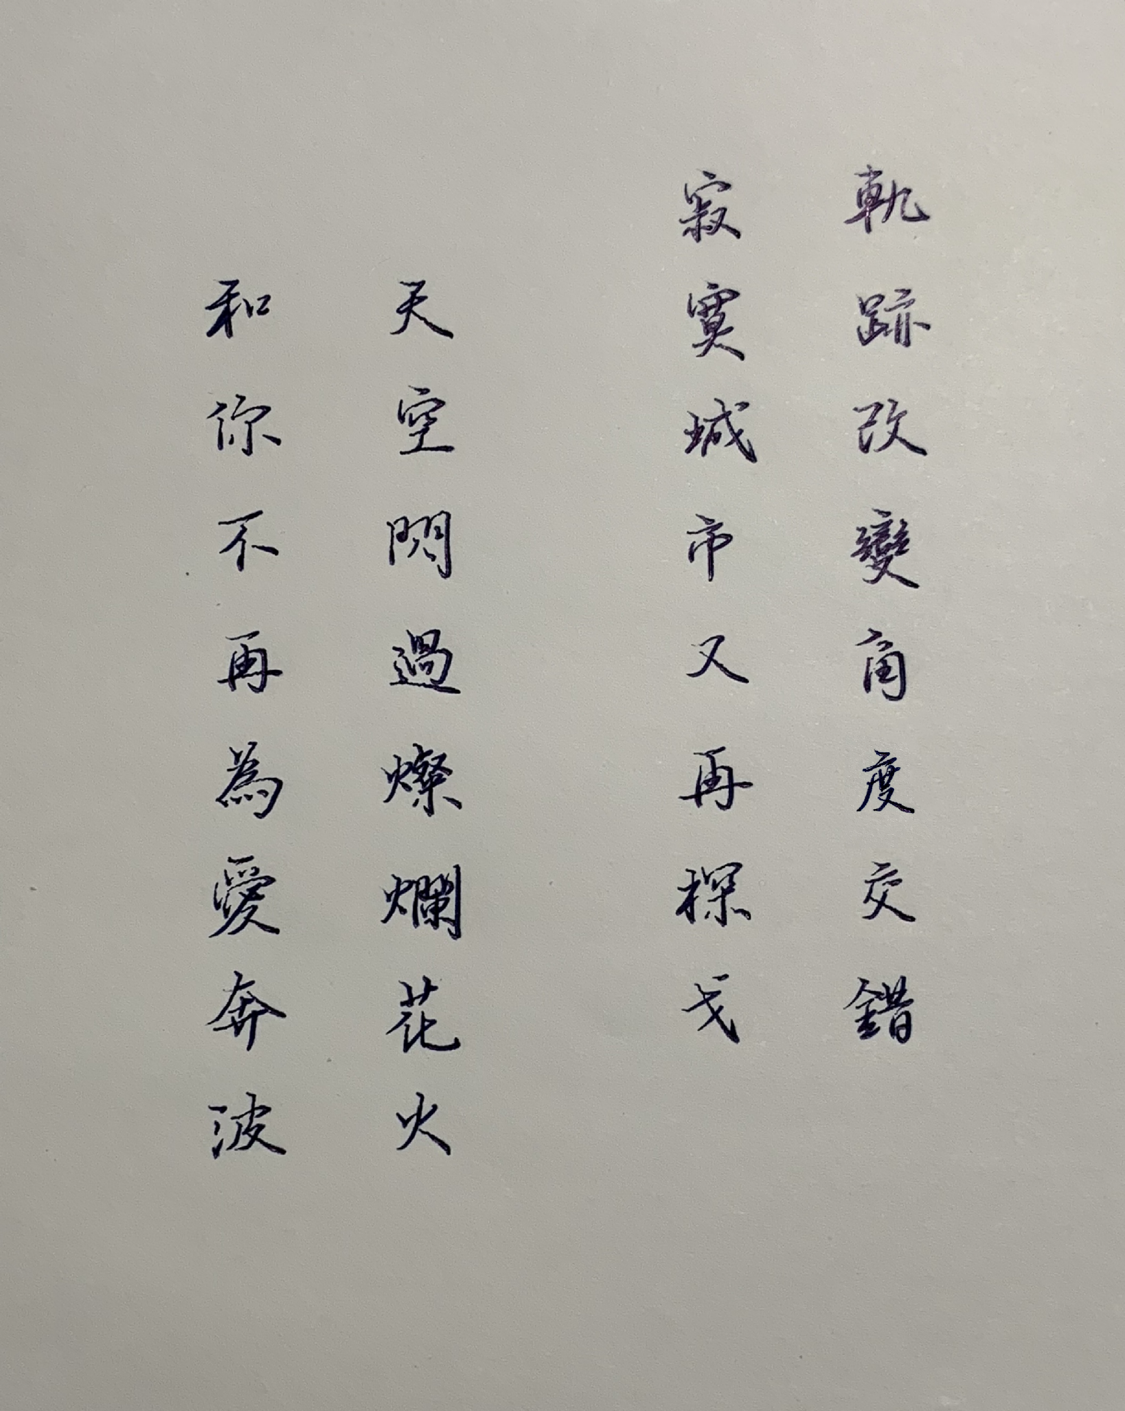 軌跡改變角度交錯
寂寞城市又再探戈
天空閃過燦爛花火
和你不再為愛奔波